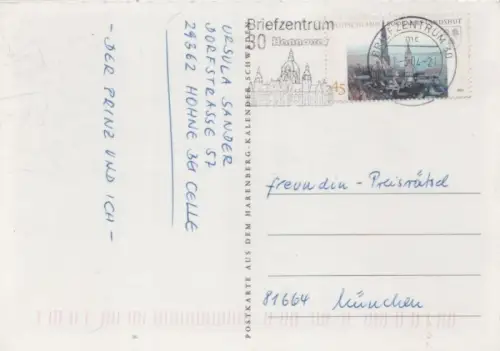 - DER PRINZ UND ICH -
URSULA SANDER
DORFSTRASSE 57
29362 HOHNE BEI CELLE
POSTKARTE AUS DEM HARENBERG-KALENDER SCHWEDEN
Briefzentrum
30 Hannover
BRIEFZENTRUM 30
45
freundin - Preisrätsel
81664 München